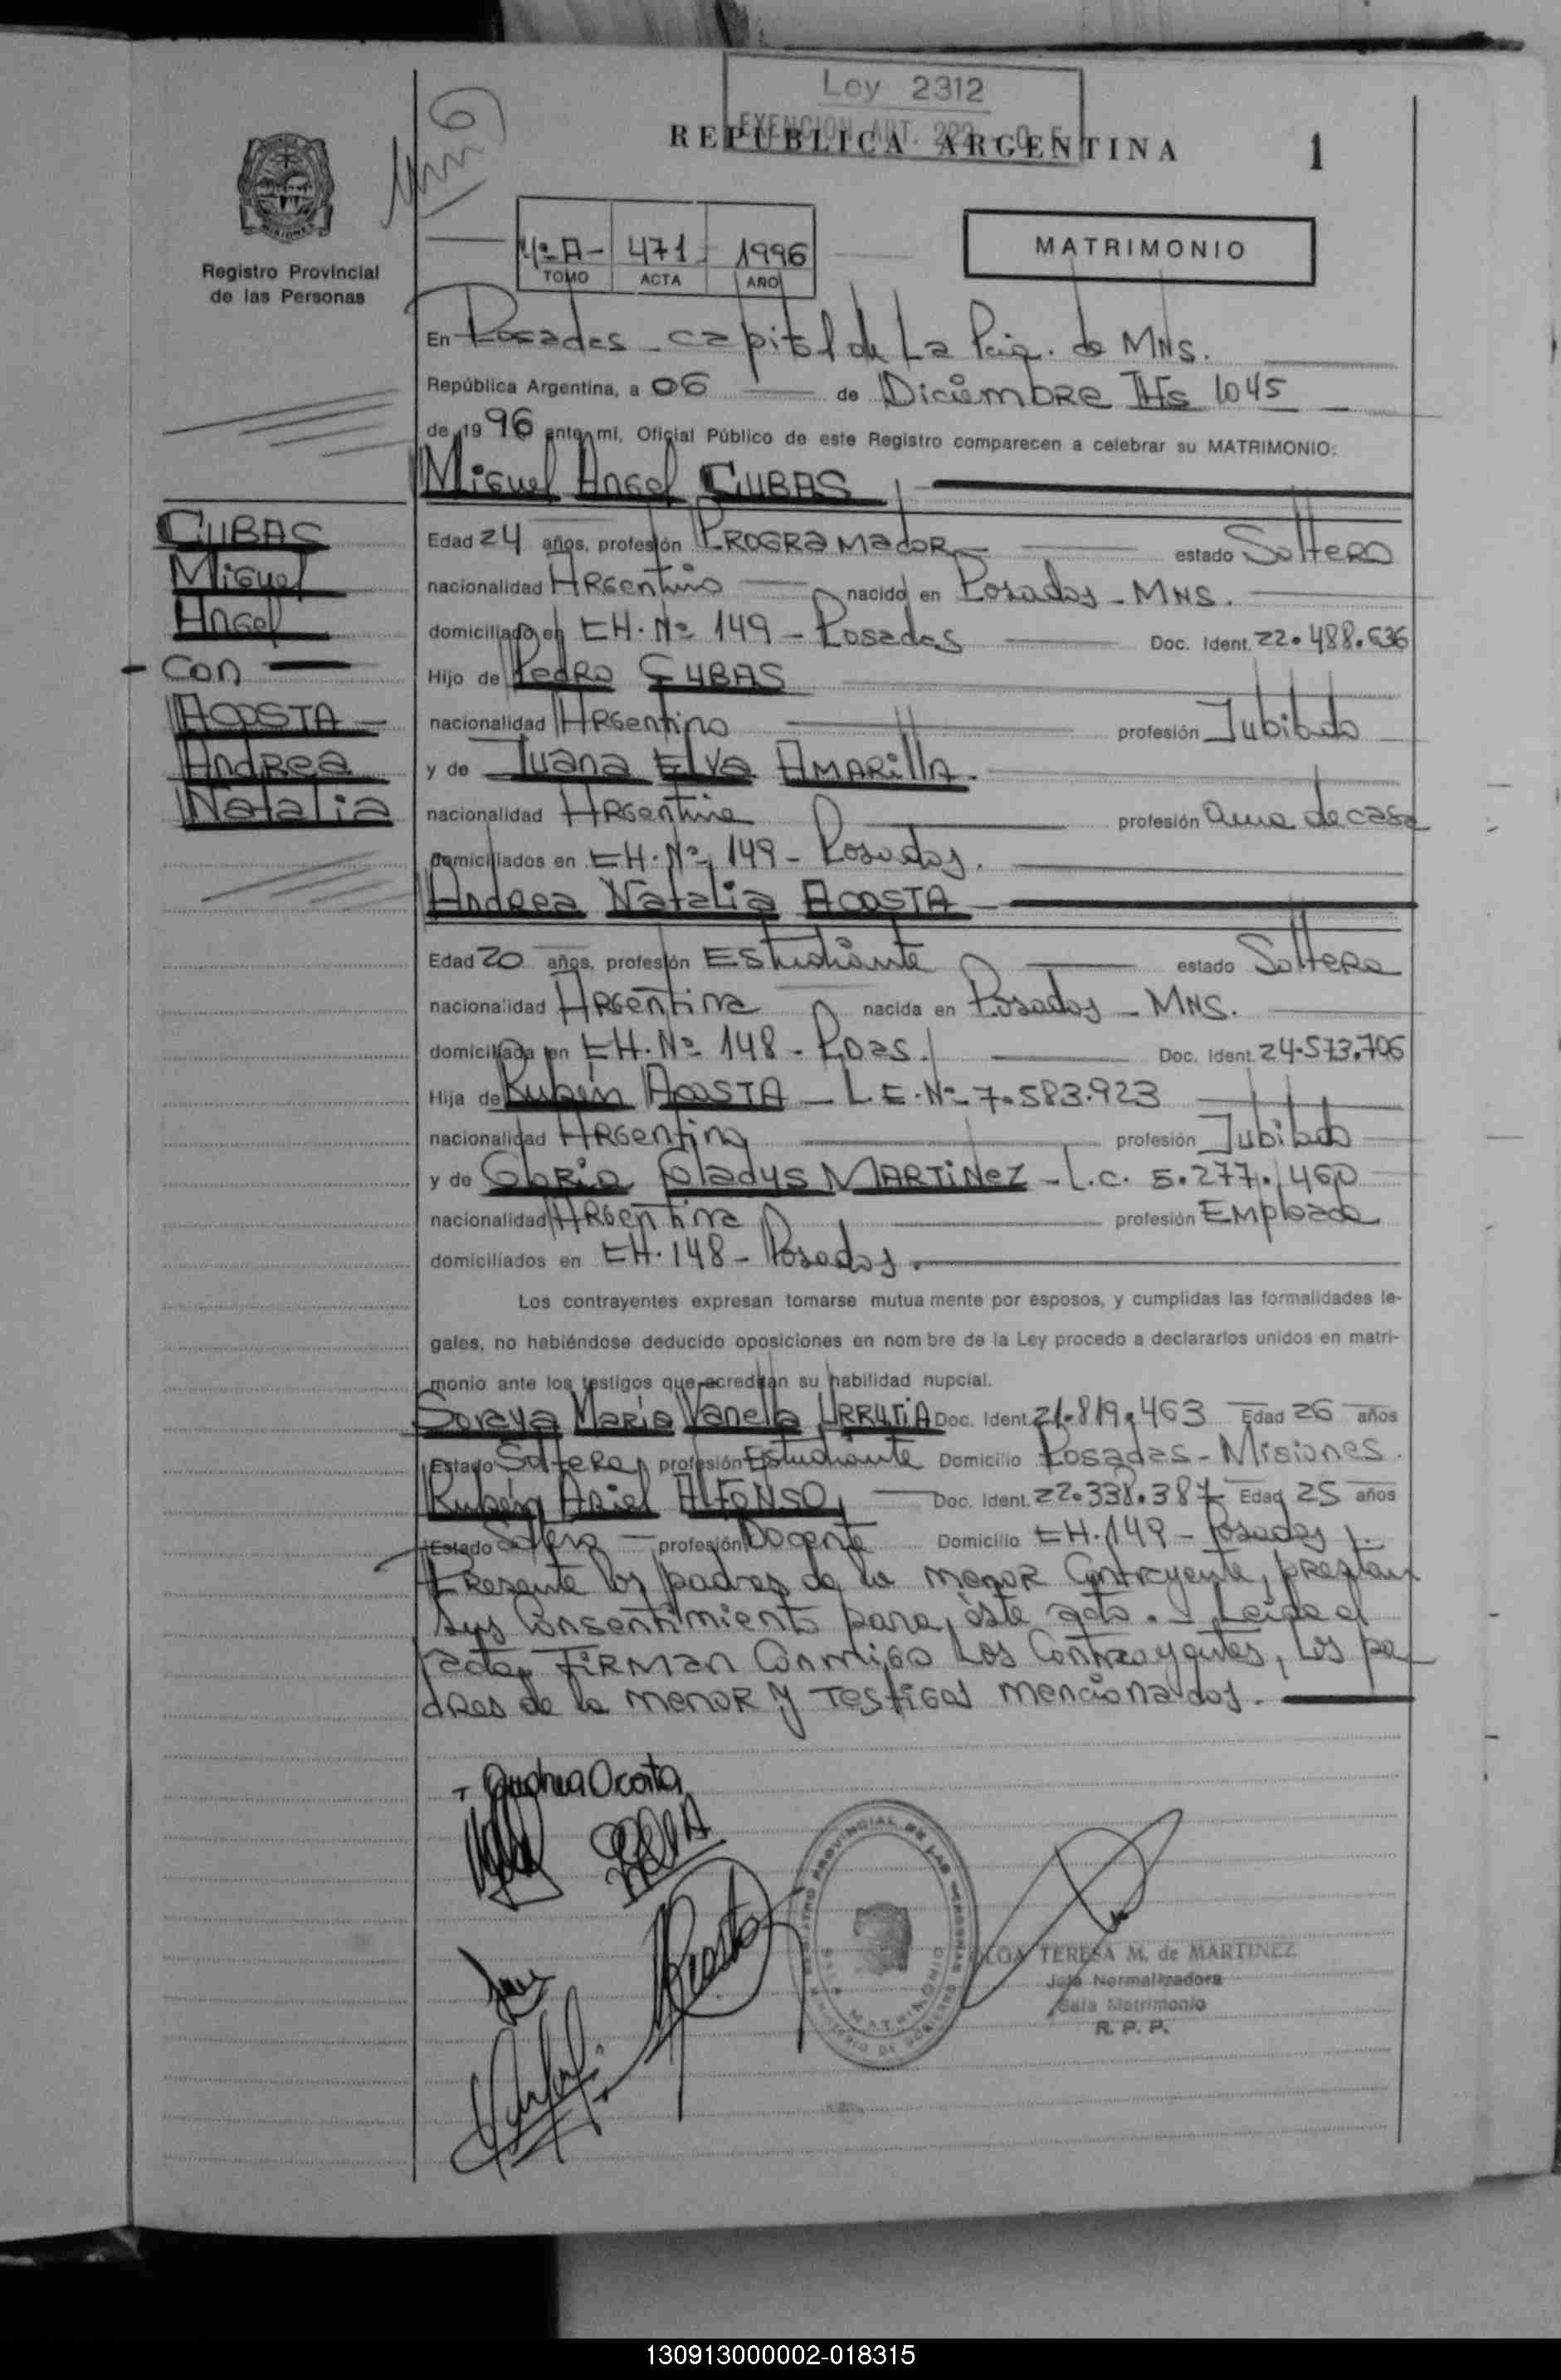 Ley 2312
EXENCION ART.
REPUBLICA ARGENTINA
1
MISIONES
Registro Provincial
de las Personas
4º A - 471 - 1996
TOMO ACTA AÑO
MATRIMONIO
En Posadas - capital de La Pcia. de MNS.
República Argentina, a 06 de Diciembre Hs 1045
de 1996 ante mí, Oficial Público de este Registro comparecen a celebrar su MATRIMONIO:
Miguel Angel CUBAS
CUBAS
Miguel
Angel
- Con
ACOSTA
Andrea
Natalia
Edad 24 años, profesión PROGRAMADOR estado Soltero
nacionalidad Argentino nacido en Posadas - MNS.
domiciliado en CH. Nº 149 - Posadas Doc. Ident. 22.488.636
Hijo de Pedro CUBAS
nacionalidad Argentino profesión Jubilado
y de Juana Elva AMARILLA.
nacionalidad Argentina profesión ama de casa
domiciliados en CH. Nº 149 - Posadas.
Andrea Natalia ACOSTA
Edad 20 años, profesión Estudiante estado Soltera
nacionalidad Argentina nacida en Posadas - MNS.
domiciliada en CH. Nº 148 - Pdas. Doc. Ident. 24.573.706
Hija de Rubén ACOSTA - L.E. Nº 7.583.923
nacionalidad Argentino profesión Jubilado
y de Gloria Gladys MARTINEZ - L.C. 5.277.460
nacionalidad Argentina profesión Empleada
domiciliados en CH. 148 - Posadas.
Los contrayentes expresan tomarse mutua mente por esposos, y cumplidas las formalidades le-
gales, no habiéndose deducido oposiciones en nom bre de la Ley procedo a declararlos unidos en matri-
monio ante los testigos que acreditan su habilidad nupcial.
Soraya María Vanella URRUTIA Doc. Ident. 21.819.463 Edad 26 años
Estado Soltera profesión Estudiante Domicilio Posadas - Misiones.
Rubén Ariel ALFONSO, Doc. Ident. 22.338.387 Edad 25 años
Estado Soltero profesión Docente Domicilio CH. 149 - Posadas.
Presente los padres de la menor Contrayente, prestan
sus Consentimiento para, éste acto. - Leída el
acta, FIRMAN Conmigo Los Contrayentes, Los pa
dres de la menor y Testigos mencionados.
Andrea Acosta
Acosta
REGISTRO PROVINCIAL DE LAS PERSONAS
MATRIMONIO
OLGA TERESA M. de MARTINEZ
Jefa Normalizadora
Sala Matrimonio
R. P. P.
130913000002-018315